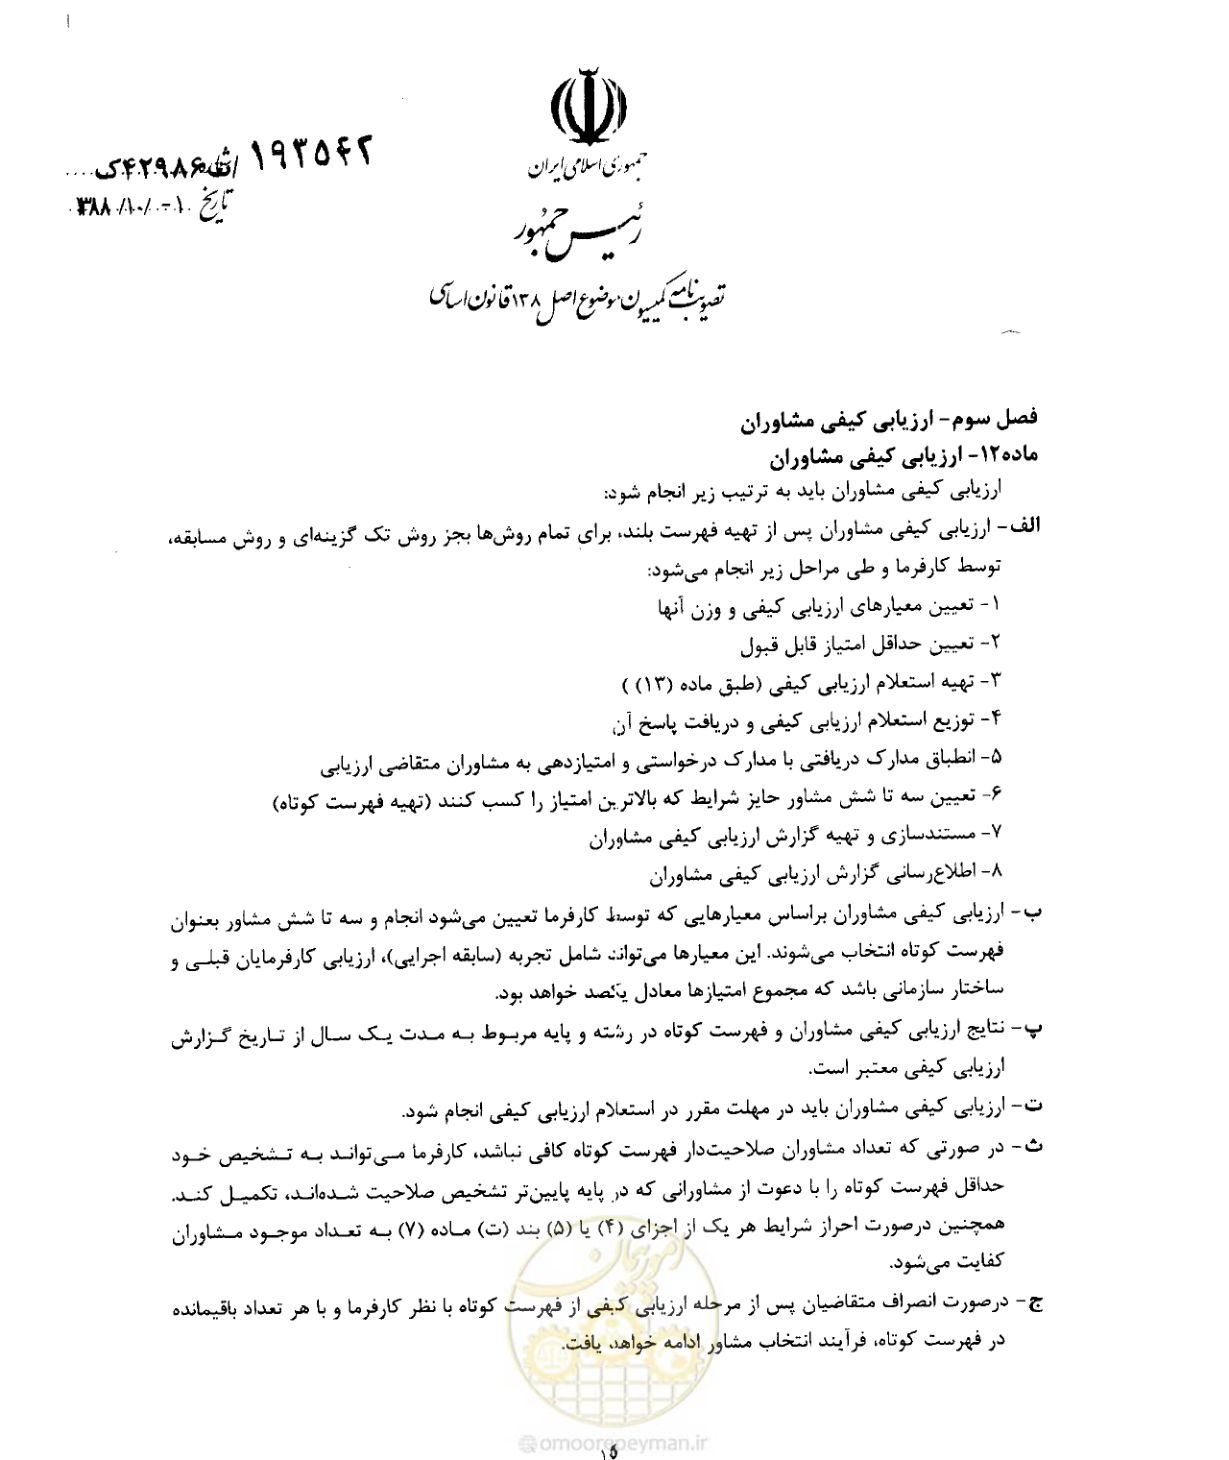 جمهوری اسلامی ایران
رئیس جمهور
تصویب‌نامه کمیسیون موضوع اصل ۱۳۸ قانون اساسی
۱۹۳۵۴۲ / ۴۲۹۸۶ک
تاریخ ۱۳۸۸/۱۰/۰۱
فصل سوم- ارزیابی کیفی مشاوران
ماده۱۲- ارزیابی کیفی مشاوران
ارزیابی کیفی مشاوران باید به ترتیب زیر انجام شود:
الف- ارزیابی کیفی مشاوران پس از تهیه فهرست بلند، برای تمام روش‌ها بجز روش تک گزینه‌ای و روش مسابقه،
توسط کارفرما و طی مراحل زیر انجام می‌شود:
۱- تعیین معیارهای ارزیابی کیفی و وزن آنها
۲- تعیین حداقل امتیاز قابل قبول
۳- تهیه استعلام ارزیابی کیفی (طبق ماده (۱۳) )
۴- توزیع استعلام ارزیابی کیفی و دریافت پاسخ آن
۵- انطباق مدارک دریافتی با مدارک درخواستی و امتیازدهی به مشاوران متقاضی ارزیابی
۶- تعیین سه تا شش مشاور حایز شرایط که بالاترین امتیاز را کسب کنند (تهیه فهرست کوتاه)
۷- مستندسازی و تهیه گزارش ارزیابی کیفی مشاوران
۸- اطلاع‌رسانی گزارش ارزیابی کیفی مشاوران
ب- ارزیابی کیفی مشاوران براساس معیارهایی که توسط کارفرما تعیین می‌شود انجام و سه تا شش مشاور بعنوان
فهرست کوتاه انتخاب می‌شوند. این معیارها می‌تواند شامل تجربه (سابقه اجرایی)، ارزیابی کارفرمایان قبلی و
ساختار سازمانی باشد که مجموع امتیازها معادل یکصد خواهد بود.
پ- نتایج ارزیابی کیفی مشاوران و فهرست کوتاه در رشته و پایه مربوط به مدت یک سال از تاریخ گزارش
ارزیابی کیفی معتبر است.
ت- ارزیابی کیفی مشاوران باید در مهلت مقرر در استعلام ارزیابی کیفی انجام شود.
ث- در صورتی که تعداد مشاوران صلاحیت‌دار فهرست کوتاه کافی نباشد، کارفرما می‌تواند به تشخیص خود
حداقل فهرست کوتاه را با دعوت از مشاورانی که در پایه پایین‌تر تشخیص صلاحیت شده‌اند، تکمیل کند.
همچنین درصورت احراز شرایط هر یک از اجزای (۴) یا (۵) بند (ت) ماده (۷) به تعداد موجود مشاوران
کفایت می‌شود.
ج- درصورت انصراف متقاضیان پس از مرحله ارزیابی کیفی از فهرست کوتاه با نظر کارفرما و با هر تعداد باقیمانده
در فهرست کوتاه، فرآیند انتخاب مشاور ادامه خواهد یافت.
امور پیمان
@omoorepeyman.ir
۱۵